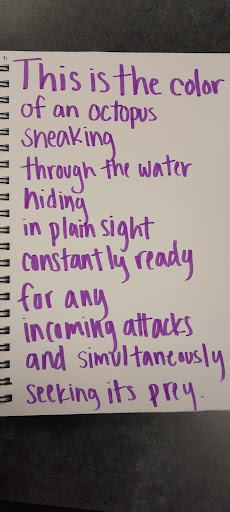 This is the color
of an octopus
sneaking
through the water
hiding
in plain sight
constantly ready
for any
incoming attacks
and simultaneously
seeking its prey.